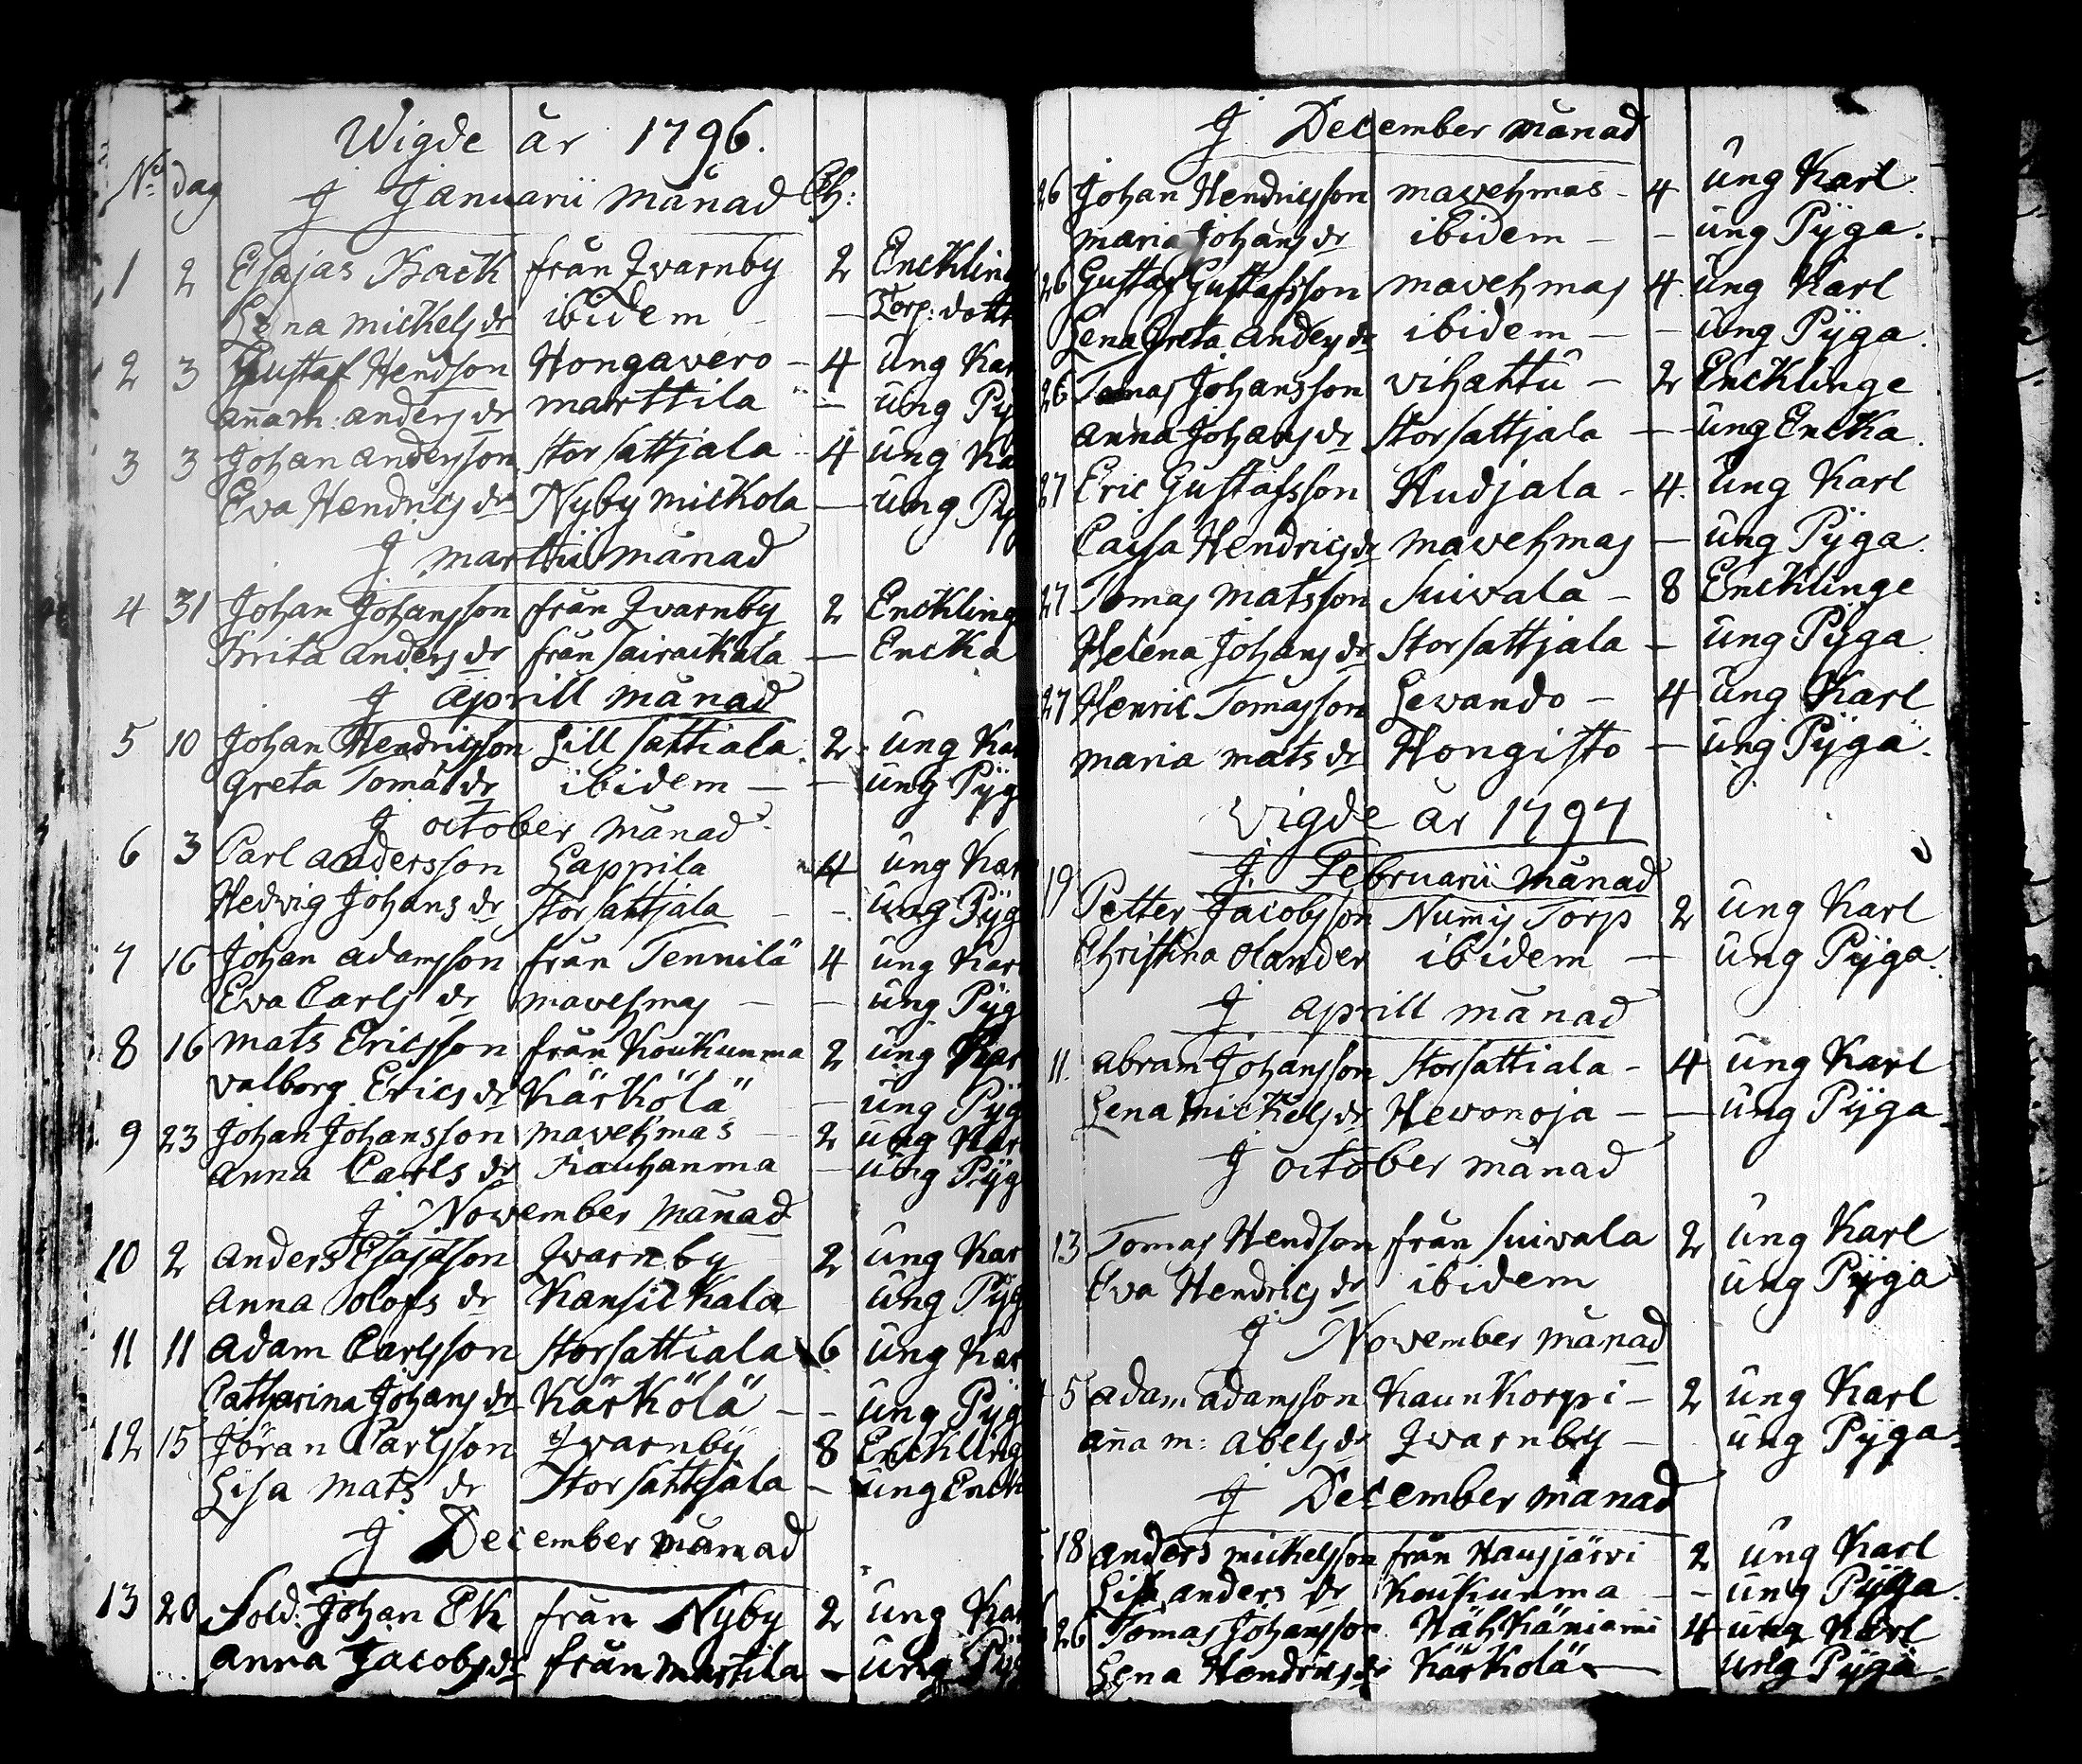 Wigde år 1796.
No dag J Januarii månad Ch:
1 2 Esajas Back från Qvarnby 2 Enckling
Lena Michelsdr ibidem — — Torp: dott
2 3 Gustaf Hendson Hongavero — 4 ung Kar
Anna m: andersdr marttila — ung Py
3 3 Johan andersson Storsattjala — 4 ung Ka
Eva Hendricsdr Nyby mickola — ung Py
J martii månad
4 31 Johan Johansson från Qvarnby 2 Enckling
Brita andersdr från Sairackala — Encka
J Aprill månad
5 10 Johan Hendricsson Lill sattiala 2 ung Kar
Greta Tomas dr ibidem — — ung Pÿg
J october månad
6 3 Carl andersson Lappila 4 ung Kar
Hedvig Johans dr Storsattjala — — ung Pÿg
7 16 Johan adamsson från Tennilä 4 ung Kar
Eva Carls dr mavehmas — — ung Pÿg
8 16 mats Ericsson från Koukunma 2 ung Kar
valborg Erics dr Kärkölä — ung Pÿg
9 23 Johan Johansson mavehmas — 2 ung Kar
anna Carls dr Rauhanma — ung Pÿg
J November månad
10 2 anders Esajasson Qvarnby 2 ung Kar
anna olofs dr Kansickala ung Pÿg
11 11 adam Carlsson Storsattiala 6 ung Kar
Catharina Johansdr Kärkölä — — ung Pÿg
12 15 Jöran Carlsson Qvarnbÿ 8 Enckling
Lisa mats dr Storsattjala — ung Enck
J December månad
13 20 Sold: Johan Ek från Nyby 2 ung Kar
anna Jacobsdr från martila — ung Pÿg
J December månad
26 Johan Hendricsson mavehmas — 4 ung Karl
maria Johansdr ibidem — — ung Pÿga.
26 Gustaf Gustafsson mavehmas 4 ung Karl
Lena Greta andersdr ibidem — — ung Pÿga.
26 Tomas Johansson vihattu — 2 Encklinge
anna Johansdr Storsattjala — ung Encka.
27 Eric Gustafsson Hudjala — 4 ung Karl
Caisa Hendricsdr mavehmas — ung Pÿga.
27 Tomas matsson Suivala — 8 Encklinge
Helena Johansdr Storsattjala — ung Pÿga.
27 Henric Tomasson Levando — 4 ung Karl
maria mats dr Hongisto — ung Pÿga.
Vigde år 1797
J Februarii månad
19 Petter Jacobsson Nummis Torp 2 ung Karl
Christina olander ibidem — ung Pÿga.
J aprill månad
11. abram Johansson Storsattiala — 4 ung Karl
Lena michelsdr Hevonoja — — ung Pÿga.
J october månad
13 Tomas Hendson från Suivala 2 ung Karl
Eva Hendricsdr ibidem ung Pÿga
J November månad
5 adam adamsson Kaunkorpi — 2 ung Karl
anna m: abelsdr Qvarnby — ung Pÿga.
J December månad
18 anders michelsson från Hausjärvi 2 ung Karl
Lisa anders dr Koukunma — — ung Pÿga.
26 Tomas Johansson Hähkäniemi 4 ung Karl
Lena Hendricsdr Kärkolä — ung Pÿga.